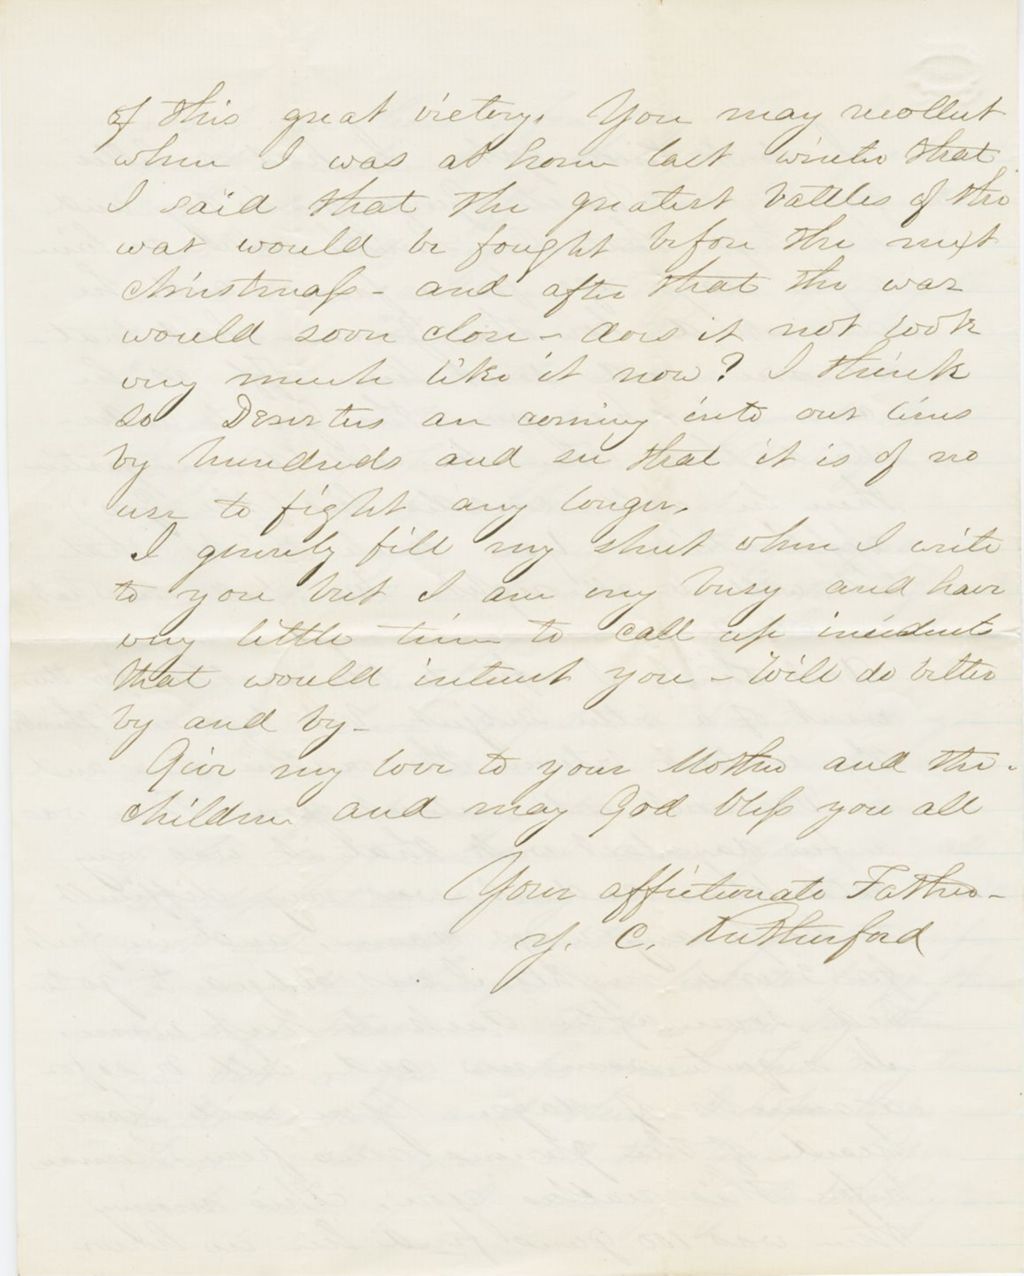 of this great victory. You may recollect
when I was at home last winter that
I said that the greatest battles of the
war would be fought before the next
Christmass - and after that the war
would soon close - does it not look
very much like it now? I think
so Deserters are coming into our lines
by hundreds and see that it is of no
use to fight any longer.
I generely fill my sheet when I write
to you but I am very busy and have
very little time to call up incidents
that would interest you - Will do better
by and by -
Give my love to your Mother and the
children and may God bless you all
Your affectionate Father -
J. C. Rutherford